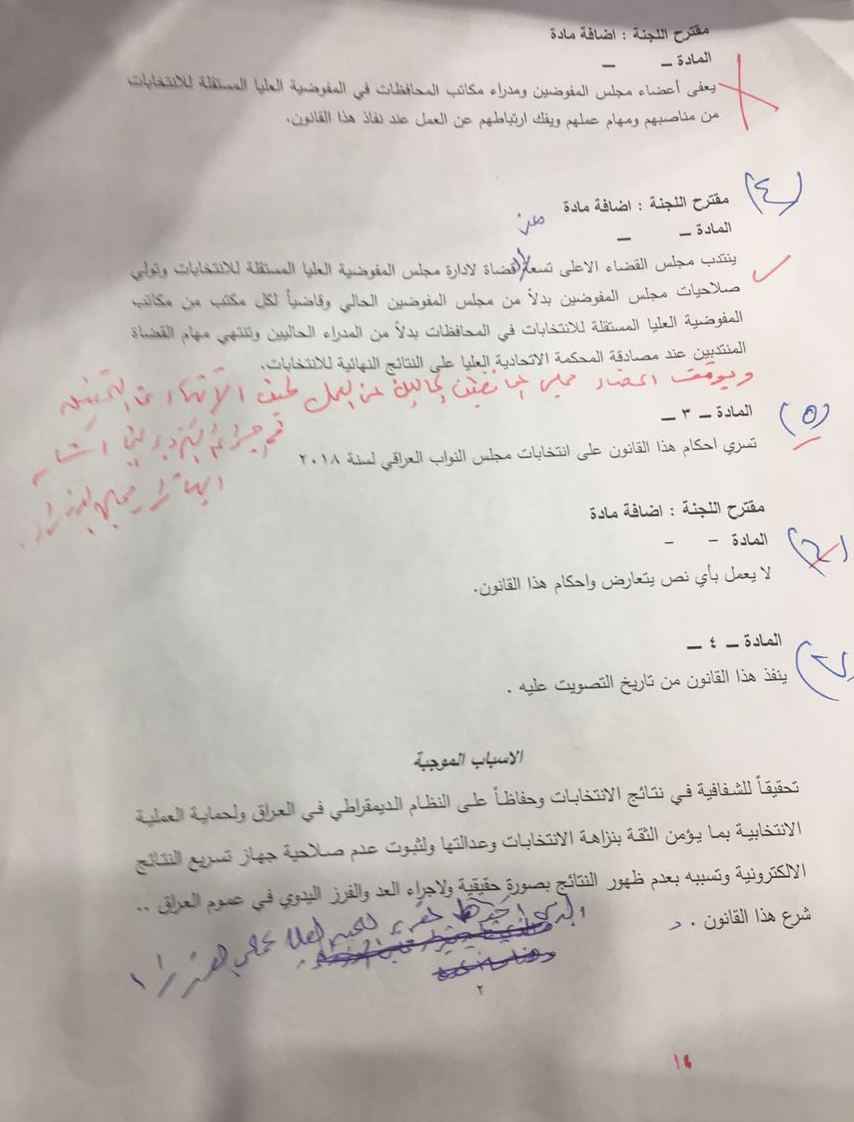 مقترح اللجنة : اضافة مادة
المادة ــ ــ
يعفى أعضاء مجلس المفوضين ومدراء مكاتب المحافظات في المفوضية العليا المستقلة للانتخابات
من مناصبهم ومهام عملهم ويفك ارتباطهم عن العمل عند نفاذ هذا القانون.
(٤)
مقترح اللجنة : اضافة مادة
المادة ــ ــ
من
ينتدب مجلس القضاء الاعلى تسعة قضاة لادارة مجلس المفوضية العليا المستقلة للانتخابات وتولي
صلاحيات مجلس المفوضين بدلاً من مجلس المفوضين الحالي وقاضياً لكل مكتب من مكاتب
المفوضية العليا المستقلة للانتخابات في المحافظات بدلاً من المدراء الحاليين وتنتهي مهام القضاة
المنتدبين عند مصادقة المحكمة الاتحادية العليا على النتائج النهائية للانتخابات.
ويوقف اعضاء مجلس المفوضين الحاليين عن العمل لحين الانتهاء من التحقيق
في جرائم التزوير التي اشار
اليها قرار مجلس الوزراء.
(٥)
المادة ــ ٣ ــ
تسري احكام هذا القانون على انتخابات مجلس النواب العراقي لسنة ٢٠١٨
مقترح اللجنة : اضافة مادة
المادة - -
(٦)
لا يعمل بأي نص يتعارض واحكام هذا القانون.
المادة ــ ٤ ــ
(٧)
ينفذ هذا القانون من تاريخ التصويت عليه .
الاسباب الموجبة
تحقيقاً للشفافية في نتائج الانتخابات وحفاظاً على النظام الديمقراطي في العراق ولحماية العملية
الانتخابية بما يؤمن الثقة بنزاهة الانتخابات وعدالتها ولثبوت عدم صلاحية جهاز تسريع النتائج
الالكترونية وتسببه بعدم ظهور النتائج بصورة حقيقية ولاجراء العد والفرز اليدوي في عموم العراق ..
شرع هذا القانون .
٢
16